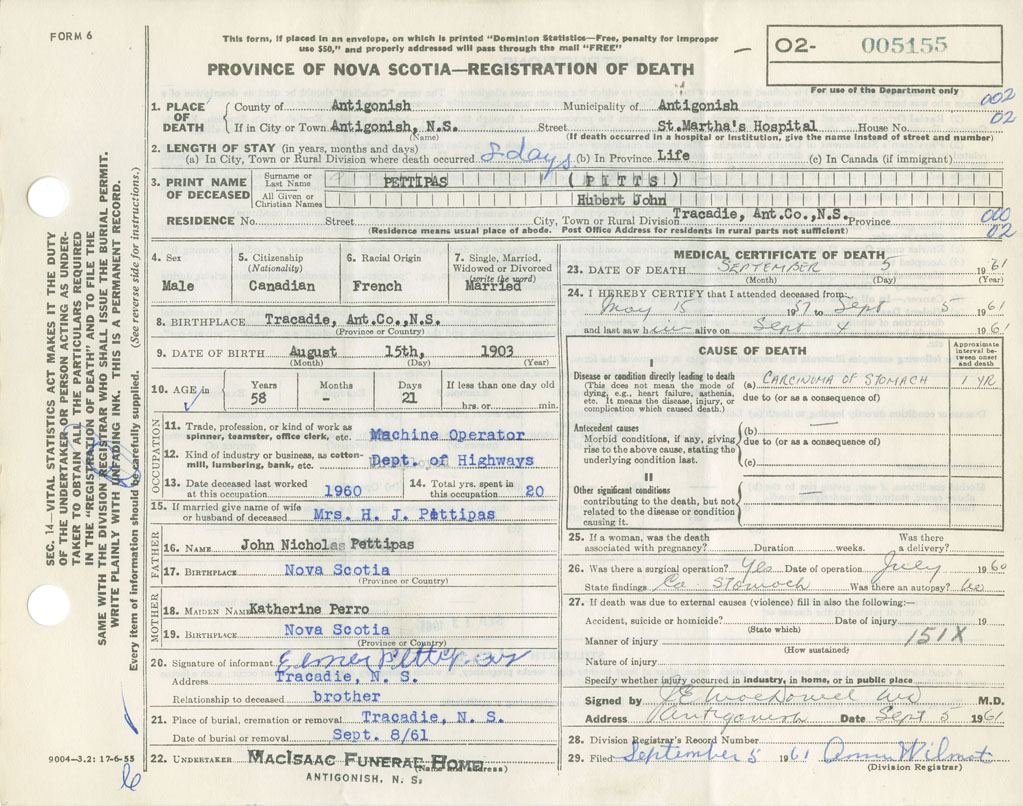 FORM 6
This form, if placed in an envelope, on which is printed "Dominion Statistics—Free, penalty for improper
use $50," and properly addressed will pass through the mail "FREE"
PROVINCE OF NOVA SCOTIA—REGISTRATION OF DEATH
02- 005155
For use of the Department only
SEC. 14—VITAL STATISTICS ACT MAKES IT THE DUTY
OF THE UNDERTAKER OR PERSON ACTING AS UNDER-
TAKER TO OBTAIN ALL THE PARTICULARS REQUIRED
IN THE "REGISTRATION OF DEATH" AND TO FILE THE
SAME WITH THE DIVISION REGISTRAR WHO SHALL ISSUE THE BURIAL PERMIT.
WRITE PLAINLY WITH UNFADING INK. THIS IS A PERMANENT RECORD.
Every item of information should be carefully supplied. (See reverse side for instructions.)
1. PLACE OF DEATH County of Antigonish Municipality of Antigonish 002
If in City or Town Antigonish, N.S. Street St.Martha's Hospital House No. 02
(Name) (If death occurred in a hospital or institution, give the name instead of street and number)
2. LENGTH OF STAY (in years, months and days)
(a) In City, Town or Rural Division where death occurred 8 days (b) In Province Life (c) In Canada (if immigrant)
3. PRINT NAME OF DECEASED Surname or Last Name PETTIPAS (PITTS)
All Given or Christian Names Hubert John
RESIDENCE No. Street City, Town or Rural Division Tracadie, Ant.Co.,N.S. Province 000
02
(Residence means usual place of abode. Post Office Address for residents in rural parts not sufficient)
4. Sex 5. Citizenship (Nationality) 6. Racial Origin 7. Single, Married, Widowed or Divorced (write the word)
Male Canadian French Married
8. BIRTHPLACE Tracadie, Ant.Co.,N.S.
(Province or Country)
9. DATE OF BIRTH August 15th, 1903
(Month) (Day) (Year)
10. AGE in Years Months Days If less than one day old
58 - 21 hrs. or min.
OCCUPATION
11. Trade, profession, or kind of work as spinner, teamster, office clerk, etc. Machine Operator
12. Kind of industry or business, as cotton-mill, lumbering, bank, etc. Dept. of Highways
13. Date deceased last worked at this occupation 1960 14. Total yrs. spent in this occupation 20
15. If married give name of wife or husband of deceased Mrs. H. J. Pettipas
FATHER
16. NAME John Nicholas Pettipas
17. BIRTHPLACE Nova Scotia
(Province or Country)
MOTHER
18. MAIDEN NAME Katherine Perro
19. BIRTHPLACE Nova Scotia
(Province or Country)
20. Signature of informant Elmer Pettipas
Address Tracadie, N. S.
Relationship to deceased brother
21. Place of burial, cremation or removal Tracadie, N. S.
Date of burial or removal Sept. 8/61
22. UNDERTAKER MACISAAC FUNERAL HOME
(Name and address)
ANTIGONISH, N. S.
9004—3.2: 17-6-55
6
MEDICAL CERTIFICATE OF DEATH
23. DATE OF DEATH SEPTEMBER 5 1961
(Month) (Day) (Year)
24. I HEREBY CERTIFY that I attended deceased from:
May 15 1957 to Sept 5 1961
and last saw him alive on Sept 4 1961
CAUSE OF DEATH Approximate interval between onset and death
I
Disease or condition directly leading to death (a) CARCINOMA OF STOMACH 1 YR
(This does not mean the mode of dying, e.g., heart failure, asthenia, etc. It means the disease, injury, or complication which caused death.) due to (or as a consequence of)
Antecedent causes (b) —
Morbid conditions, if any, giving rise to the above cause, stating the underlying condition last. due to (or as a consequence of)
(c)
II
Other significant conditions —
contributing to the death, but not related to the disease or condition causing it.
25. If a woman, was the death associated with pregnancy? Duration weeks. Was there a delivery?
26. Was there a surgical operation? Yes Date of operation July 1960
State findings Ca Stomach Was there an autopsy? No
27. If death was due to external causes (violence) fill in also the following:—
Accident, suicide or homicide? Date of injury 19
(State which)
Manner of injury 151X
(How sustained)
Nature of injury
Specify whether injury occurred in industry, in home, or in public place
Signed by J E MacDowel MD M.D.
Address Antigonish Date Sept 5 1961
28. Division Registrar's Record Number
29. Filed September 5 1961 Anna Wilmot
(Division Registrar)